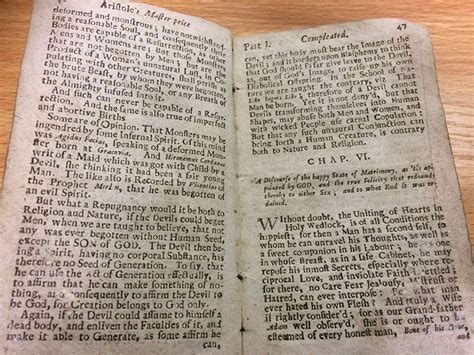 Aristotle's Master piece
deformed and monstrous; have notwithstand-
ing a reasonable Soul, and consequently their
Bodies are capable of a Resurrection; but those
Men and Womens are; But those Monsters
the Product of a Woman's unnatural Lust, in
pulating with other Creatures, shall perish as
the brute Beast, by whom they were begotten,
not having a reasonable Soul, or any Breath of
the Almighty infused into it.
And such can never be capable of a Resur-
rection. And the same is also true of imperfect
and abortive Births
Some are of Opinion. That Monsters may be
ingendred by some Infernal Spirit. Of this mind
was Ægidius Facius, Speaking of a deformed Mon-
ster born at Cracovia. And Hieronimus Cardanus
writ of a Maid which was got with Child by a
Devil she thinking it had been a fair young
Man. The like also is Recorded by Vicentius of
the Prophet Merlin, that he was begotten of
an evil Spirit.
But what a Repugnancy would it be both to
Religion and Nature, if the Devils could beget
Men, when we are taught to believe, that not
any was ever begotten without Human Seed,
except the SON of GOD. The Devil then be-
ing a Spirit, having no corporal Substance, has
therein no Seed of Generation. To say that
he can use the Act of Generation effectually, is
to affirm that he can make something of no-
thing, and consequently to affirm the Devil to
be God, for Creation belongs to God only.
Again, if the Devil could assume to himself a
dead body, and enliven the Faculties of it, and
make it able to Generate, as some affirm he
can,
Part I. Compleated. 47
can, yet this body must bear the Image of the
Devil; and it borders upon Blasphemy to think
that God should so far give leave to the Devil,
as out of God's Image, to raise up his own
Diabolical Offspring. In the School of Na-
ture we are taught the contrary, viz. That
Like begets Like; therefore of a Devil cannot
Man be born. Yet it is not deny'd, but that
Devils transforming themselves into Human
Shapes, may abuse both Men and Women, and
with wicked People use carnal Copulation: But
that any such unnatural Conjunction can
bring forth a Human Creature, is contrary
both to Nature and Religion.
CHAP. VI.
A Discourse of the happy State of Matrimony, as 'tis ap-
pointed by GOD, and the true Felicity that redounds
thereby to either Sex; and to what End it was or-
dained.
Without doubt, the Uniting of Hearts in
Holy Wedlock, is of all Conditions the
happiest; for then a Man has a second self, to
whom he can unravel his Thoughts, as well as
a sweet companion in his Labour; he has one
in whose Breast, as in a safe Cabinet, he may
repose his inmost Secrets, especially where re-
ciprocal Love, and inviolate Faith is settled;
for there, no Care Fear Jealousy, Mistrust or
Hatred, can ever interpose. For what Man
ever hated his own Flesh? And truly a Wife
if rightly consider'd, is as our Grand-father
Adam well observ'd, she is or ought to be
esteemed of every honest Man, as